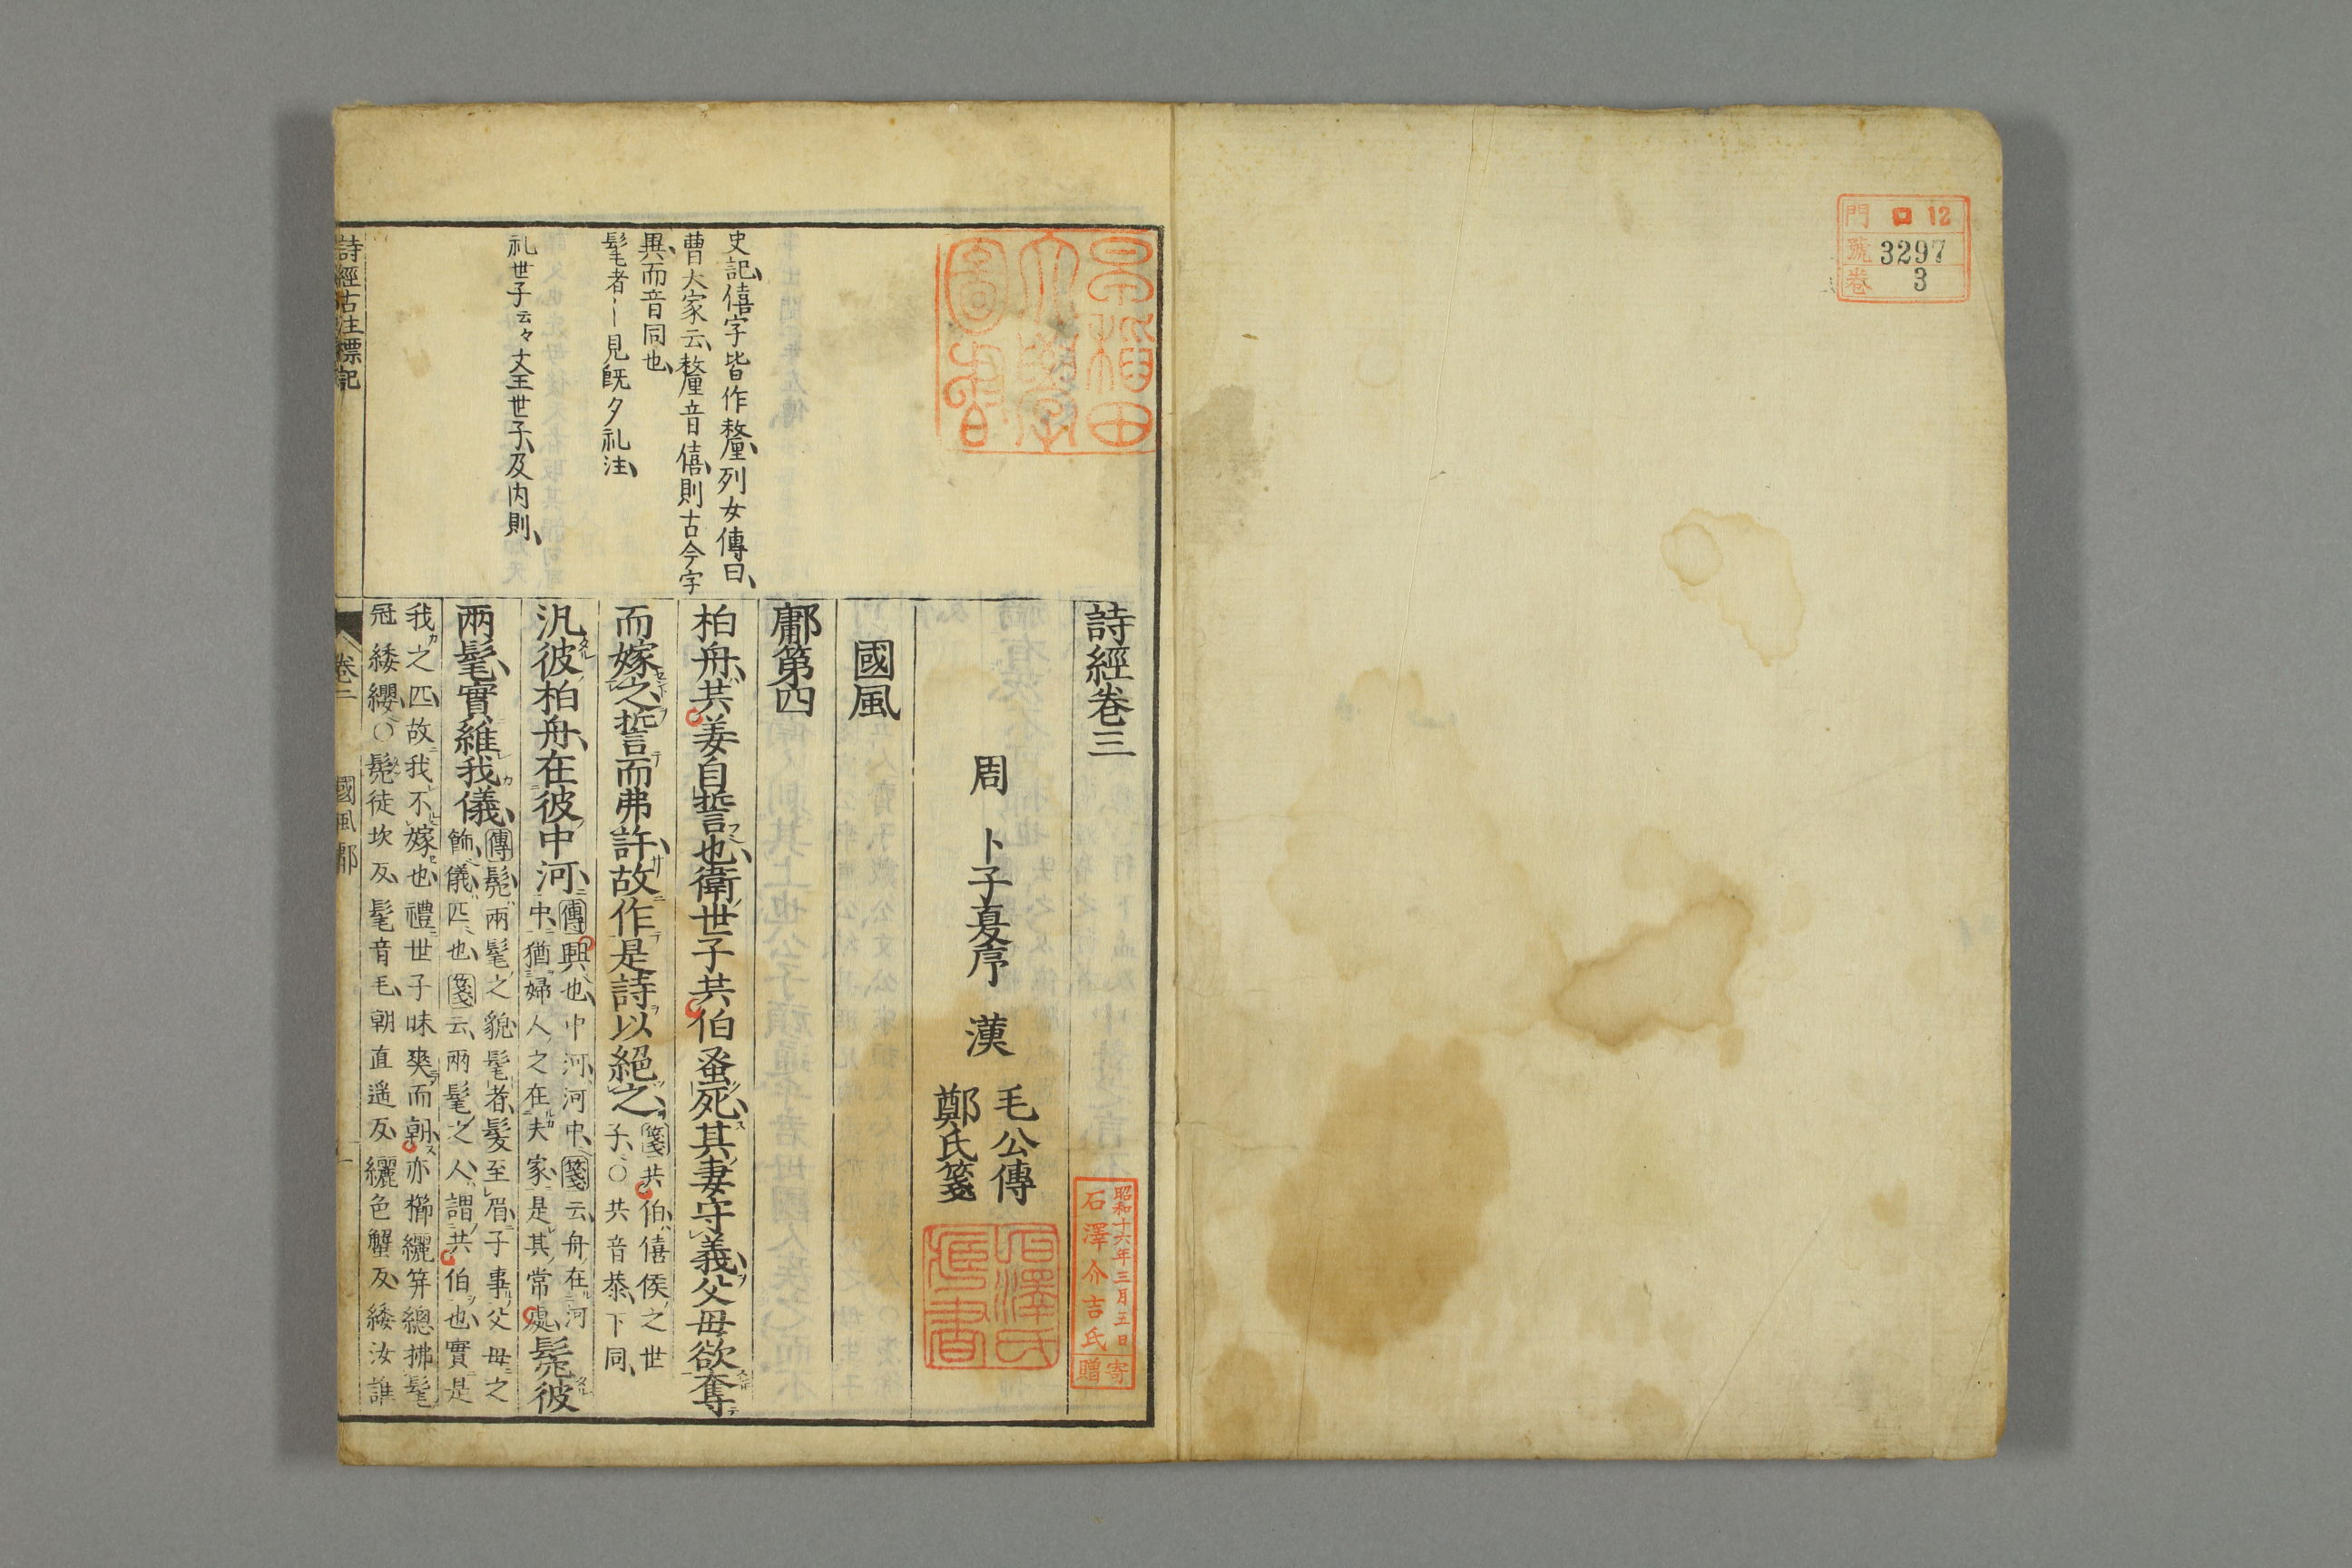 門 口 12
號 3297
卷 3
早稲田
大學
圖書
史記、僖字皆作釐、列女傳曰、
曹大家云、釐音僖、則古今字
異、而音同也、
髦者〡見既夕礼注、
礼世子云々文王世子、及内則、
詩經卷三
昭和十六年三月五日
石澤介吉氏
寄贈
周 卜子夏序 漢 毛公傳
鄭氏箋
石澤氏
蔵書
國風
鄘第四
柏舟、共姜自誓也、衛世子共伯蚤死、其妻守義、父母欲奪
而嫁之、誓而弗許、故作是詩以絕之、箋共伯、僖侯之世
子、〇共音恭、下同、
汎彼柏舟、在彼中河、傳興也、中河、河中、箋云、舟在河
中、猶婦人之在夫家、是其常處、髧彼
兩髦、實維我儀、傳髧、兩髦之貌、髦者、髮至眉、子事父母之
飾、儀、匹也、箋云、兩髦之人、謂共伯也、實是
我之匹、故我不嫁也、禮世子昧爽而朝、亦櫛纚笄總拂髦
冠緌纓、〇髧徒坎反、髦音毛、朝直遙反、纚色蟹反、緌汝誰
詩經古注標記
國風 鄘